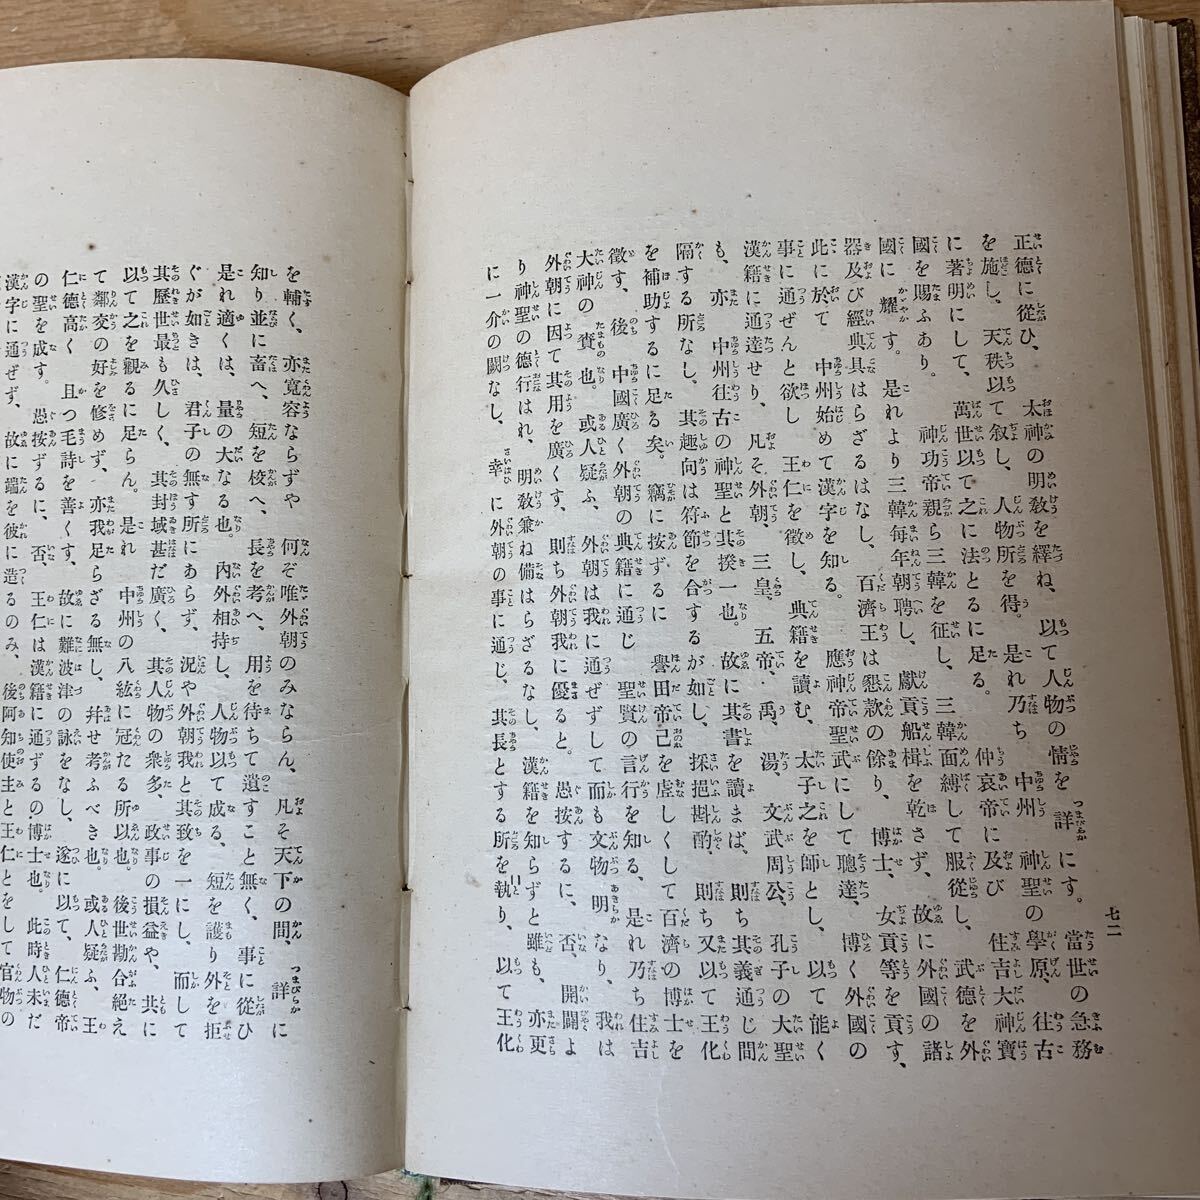 七二
正德に從ひ、太神の明敎を繹ね、以て人物の情を詳にす。當世の急務
を施し、天秩以て叙し、人物所を得。是れ乃ち中州神聖の學原、往古
に著明にして、萬世以て之に法とるに足る。仲哀帝に及び住吉大神寶
國を賜ふあり。神功帝親ら三韓を征し、三韓面縛して服從し、武德を外
國に耀す。是れより三韓每年朝聘し、獻貢船楫を乾さず、故に外國の諸
器及び經典具はらざるはなし、百濟王は懇款の餘り、博士、女貢等を貢す、
此に於て中州始めて漢字を知る。應神帝聖武にして聰達、博く外國の
事に通ぜんと欲し王仁を徵し、典籍を讀む、太子之を師とし、以て能く
漢籍に通達せり、凡そ外朝、三皇、五帝、禹、湯、文武周公、孔子の大聖
も、亦中州往古の神聖と其揆一也。故に其書を讀まば、則ち其義通じ間
隔する所なし、其趣向は符節を合するが如し、採挹斟酌、則ち又以て王化
を補助するに足る矣。竊に按ずるに譽田帝己を虛しくして百濟の博士を
徵す、後中國廣く外朝の典籍に通じ聖賢の言行を知る、是れ乃ち住吉
大神の賚也。或人疑ふ、外朝は我に通ぜずして而も文物明なり、我は
外朝に因て其用を廣くす、則ち外朝我に優ると。愚按するに、否、開闢よ
り神聖の德行はれ、明敎兼ね備はらざるなし、漢籍を知らずと雖も、亦更
に一介の闕なし、幸に外朝の事に通じ、其長とする所を執り、以て王化
を輔く、亦寬容ならずや何ぞ唯外朝のみならん、凡そ天下の間、詳に
知り並に畜へ、短を校へ、長を考へ、用を待ちて遺すこと無く、事に從ひ
是れ適くは、量の大なる也。內外相持し、人物以て成る、短を護り外を拒
ぐが如きは、君子の無す所にあらず、況や外朝我と其致を一にし、而して
其歷世最も久しく、其封域甚だ廣く、其人物の衆多、政事の損益や、共に
以て之を觀るに足らん。是れ中州の八紘に冠たる所以也。後世勘合絕え
て鄰交の好を修めず、亦我足らざる無し、幷せ考ふべき也。或人疑ふ、王
仁德高く且つ毛詩を善くす、故に難波津の詠をなし、遂に以て、仁德帝
の聖を成す。愚按ずるに、否、王仁は漢籍に通ずるの博士也。此時人未だ
漢字に通ぜず、故に端を彼に造るのみ、後阿知使主と王仁とをして官物の